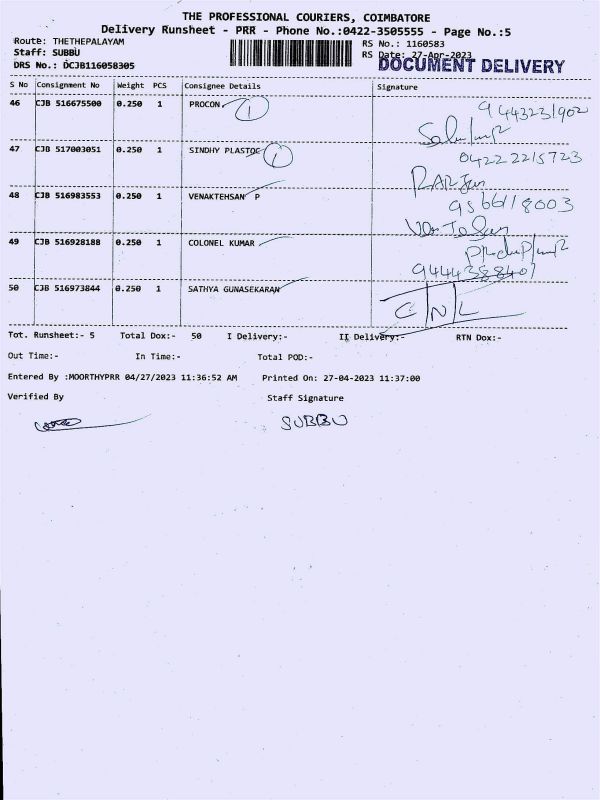 THE PROFESSIONAL COURIERS, COIMBATORE
Delivery Runsheet - PRR - Phone No.:0422-3505555 - Page No.:5
Route: THETHEPALAYAM RS No.: 1160583
Staff: SUBBU RS Date: 27-Apr-2023
DRS No.: DCJB116058305 DOCUMENT DELIVERY
S No Consignment No Weight PCS Consignee Details Signature
46 CJB 516675500 0.250 1 PROCON 1
9443231902
47 CJB 517003051 0.250 1 SINDHY PLASTOC 1
04222215723
48 CJB 516983553 0.250 1 VENAKTEHSAN P
9566118003
49 CJB 516928188 0.250 1 COLONEL KUMAR
9444388401
50 CJB 516973844 0.250 1 SATHYA GUNASEKARAN
C/N/L
Tot. Runsheet:- 5 Total Dox:- 50 I Delivery:- II Delivery:- RTN Dox:-
Out Time:- In Time:- Total POD:-
Entered By :MOORTHYPRR 04/27/2023 11:36:52 AM Printed On: 27-04-2023 11:37:00
Verified By Staff Signature
SUBBU